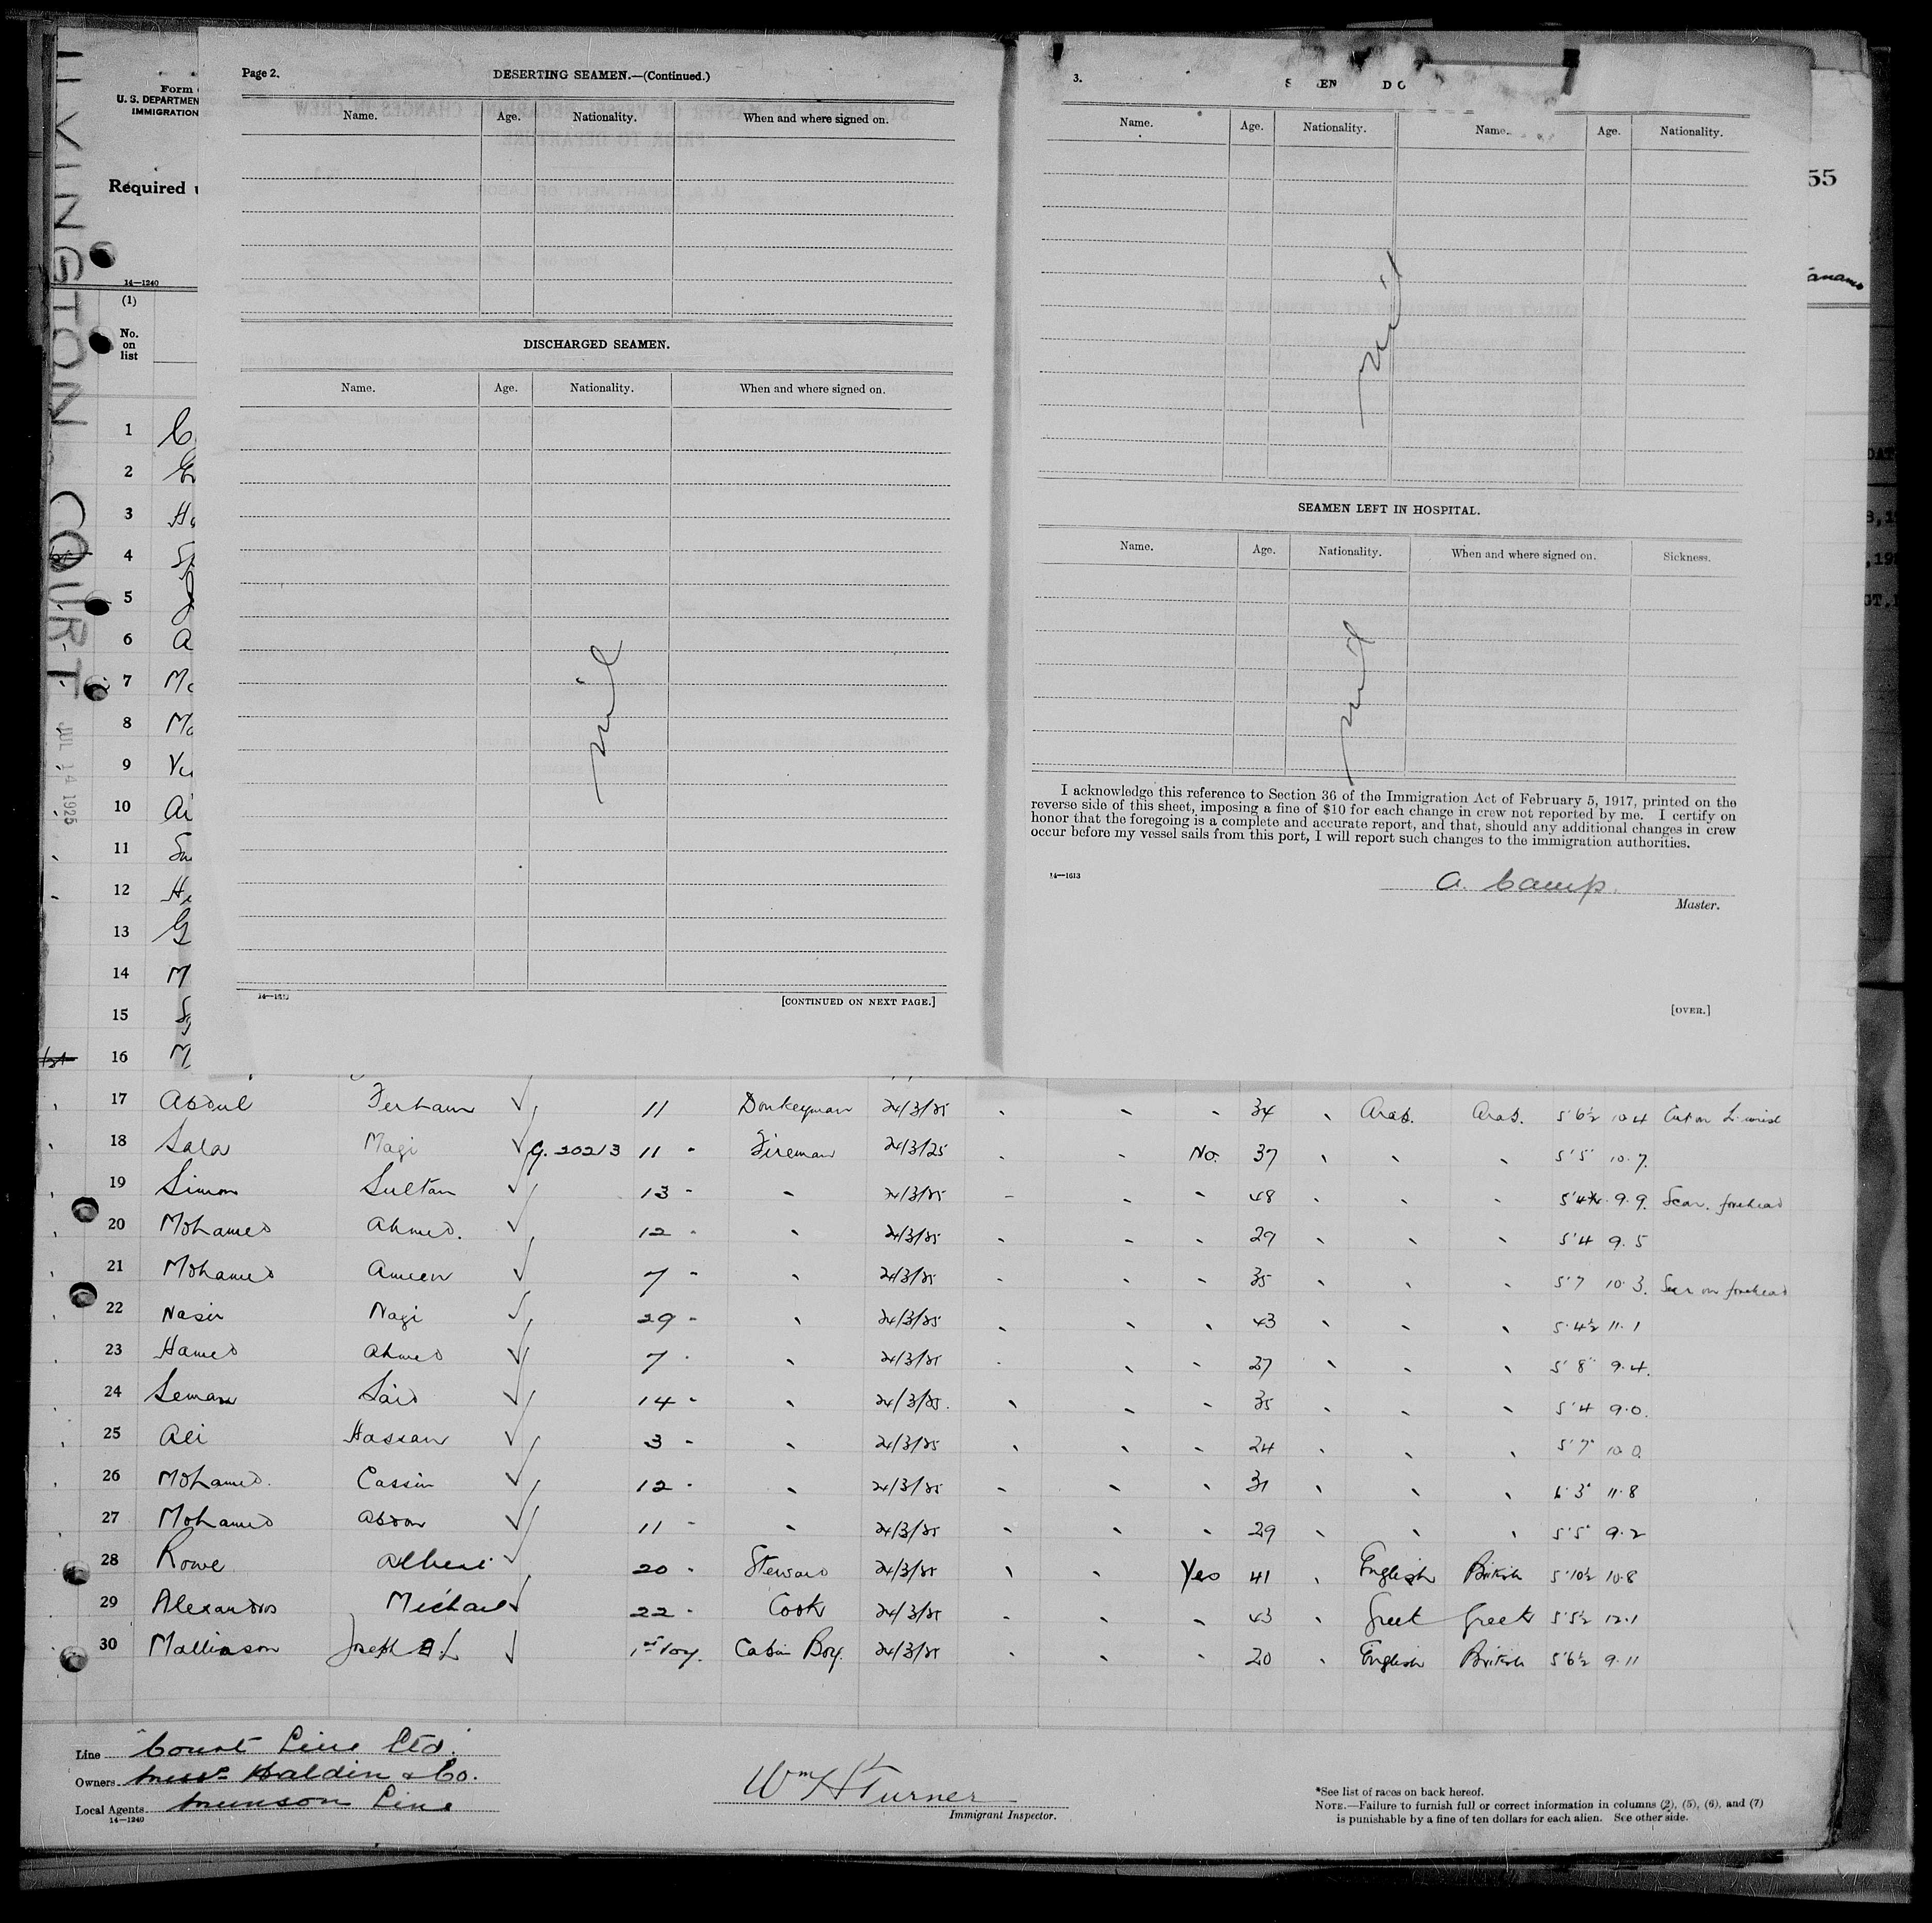 LEXINGTON COURT
JUL 14 1925
Form
U. S. DEPARTMEN
IMMIGRATION
Required
14—1240
(1)
No.
on
list
1
2
3
4
5
6
7
8
9
10
11
12
13
14
15
16
Page 2.
DESERTING SEAMEN.—(Continued.)
Name. Age. Nationality. When and where signed on.
DISCHARGED SEAMEN.
Name. Age. Nationality. When and where signed on.
nil
[CONTINUED ON NEXT PAGE.]
3.
Name. Age. Nationality. Name. Age. Nationality.
nil
SEAMEN LEFT IN HOSPITAL.
Name. Age. Nationality. When and where signed on. Sickness.
nil
I acknowledge this reference to Section 36 of the Immigration Act of February 5, 1917, printed on the
reverse side of this sheet, imposing a fine of $10 for each change in crew not reported by me. I certify on
honor that the foregoing is a complete and accurate report, and that, should any additional changes in crew
occur before my vessel sails from this port, I will report such changes to the immigration authorities.
14—1613
A. Camp.
Master.
[OVER.]
55
17 Abdul Ferhan 11 Donkeyman 24/3/25 34 Arab. Arab. 5'6½ 10.4 Cut on L. wrist
18 Sala Magi G. 20213 11 Fireman 24/3/25 No. 37 5'5" 10.7.
19 Simon Sultan 13 24/3/25 48 9.9. Scar. forehead
20 Mohamed Ahmed. 12 24/3/25 29 5'4 9.5
21 Mohamed Ameen 7 24/3/25 35 5'7 10.3. Scar on forehead
22 Nasir Nagi 29 24/3/25 43 5.4½ 11.1
23 Hamed Ahmed 7 24/3/25 27 5'8" 9.4.
24 Seman Said 14 24/3/25. 35 5'4 9.0.
25 Ali Hassan 3 24/3/25 24 5'7" 10.0.
26 Mohamed. Cassim 12 24/3/25 31 6.3" 11.8
27 Mohamed Abdon 11 24/3/25 29 5'5" 9.2
28 Rowe Albert 20 Steward 24/3/25 Yes 41 English British 5'10½ 10.8
29 Alexandros Michael 22 Cook 24/3/25 43 Greek Greek 5'5½ 12.1
30 Mallinson Joseph L 1st Voy. Cabin Boy. 24/3/25 20 English British 5'6½ 9.11
Line Court Line Ltd.
Owners Messrs Haldin & Co.
Local Agents Munson Line
14—1240
Wm H Turner
Immigrant Inspector.
*See list of races on back hereof.
NOTE.—Failure to furnish full or correct information in columns (2), (5), (6), and (7)
is punishable by a fine of ten dollars for each alien. See other side.